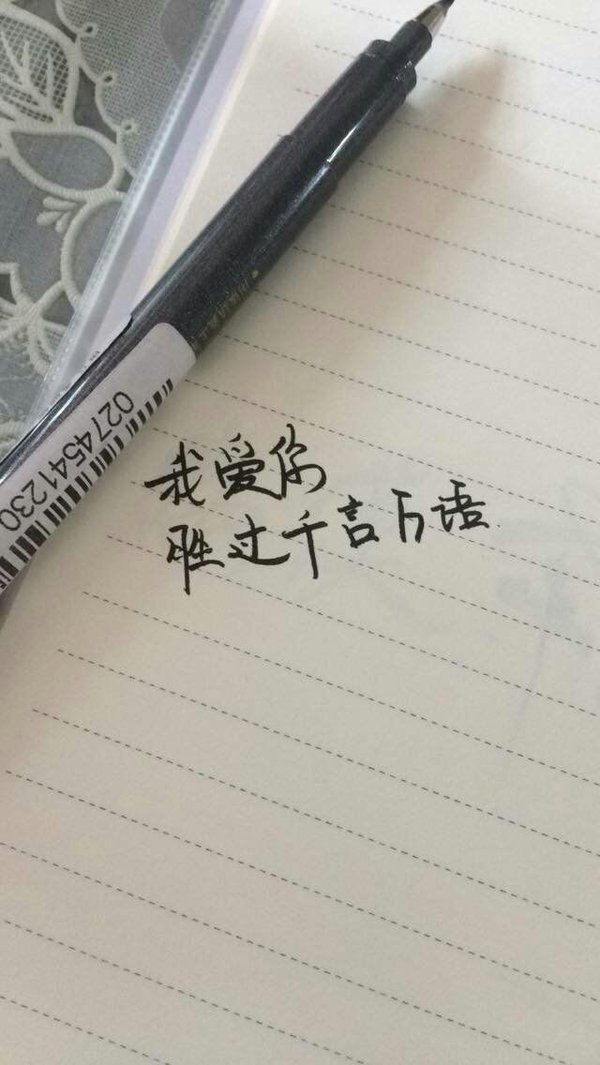 我爱你
胜过千言万语
0274541230